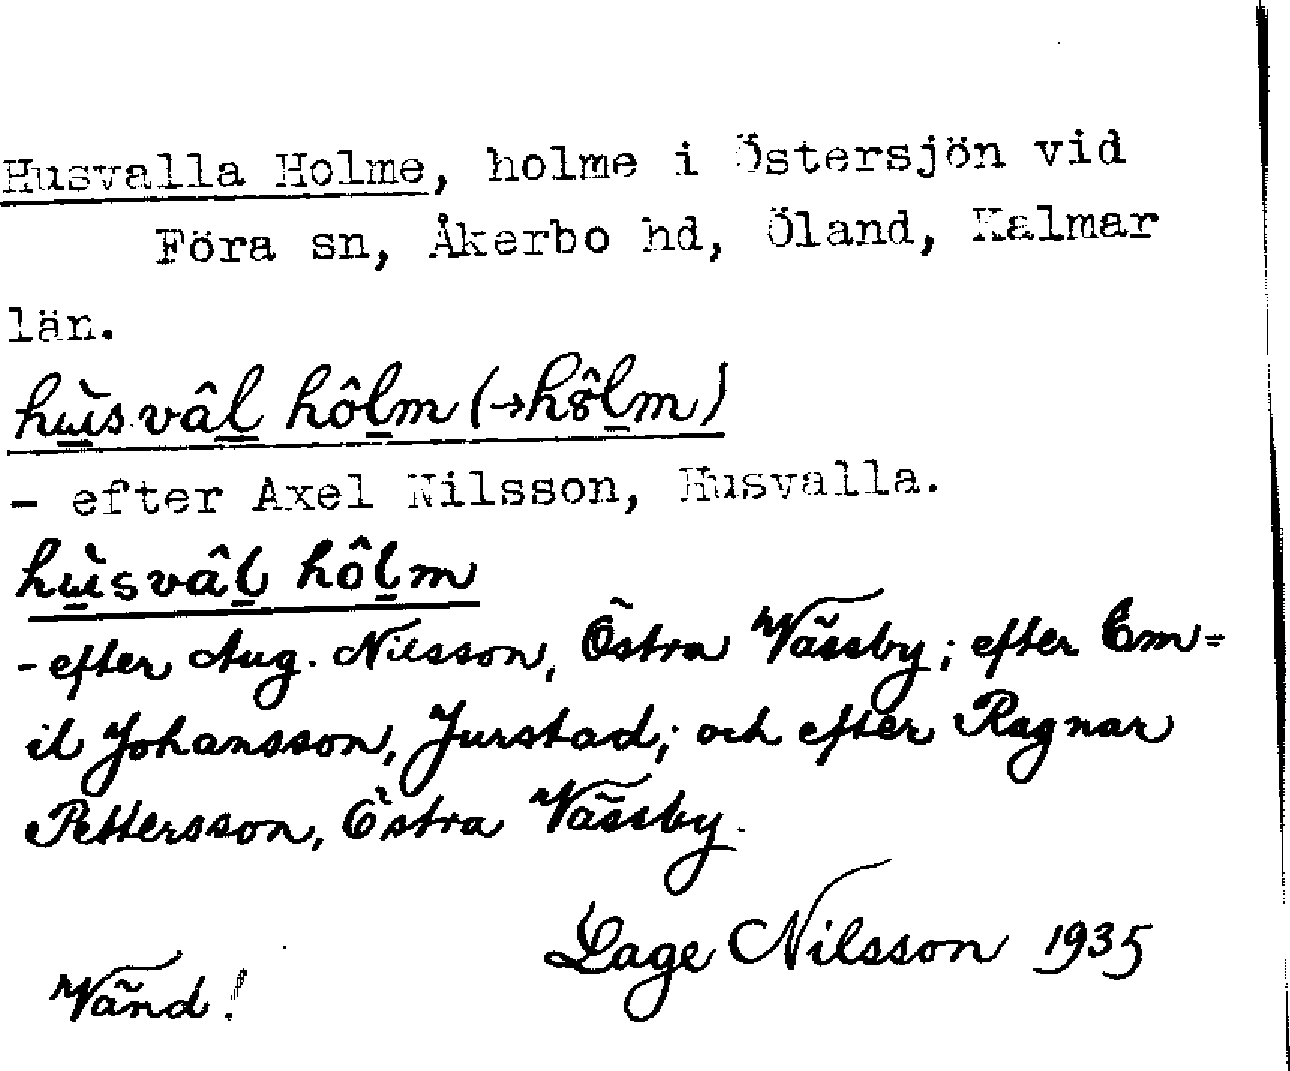 Husvalla Holme, holme i Östersjön vid
Föra sn, Åkerbo hd, Öland, Kalmar
län.
hùsvâl hôlm (→hôlm)
- efter Axel Nilsson, Husvalla.
hùsvâl hôlm
- efter Aug. Nilsson, Östra Vässby; efter Em=
il Johansson, Jurstad; och efter Ragnar
Pettersson, Östra Vässby.
Lage Nilsson 1935
Vänd!